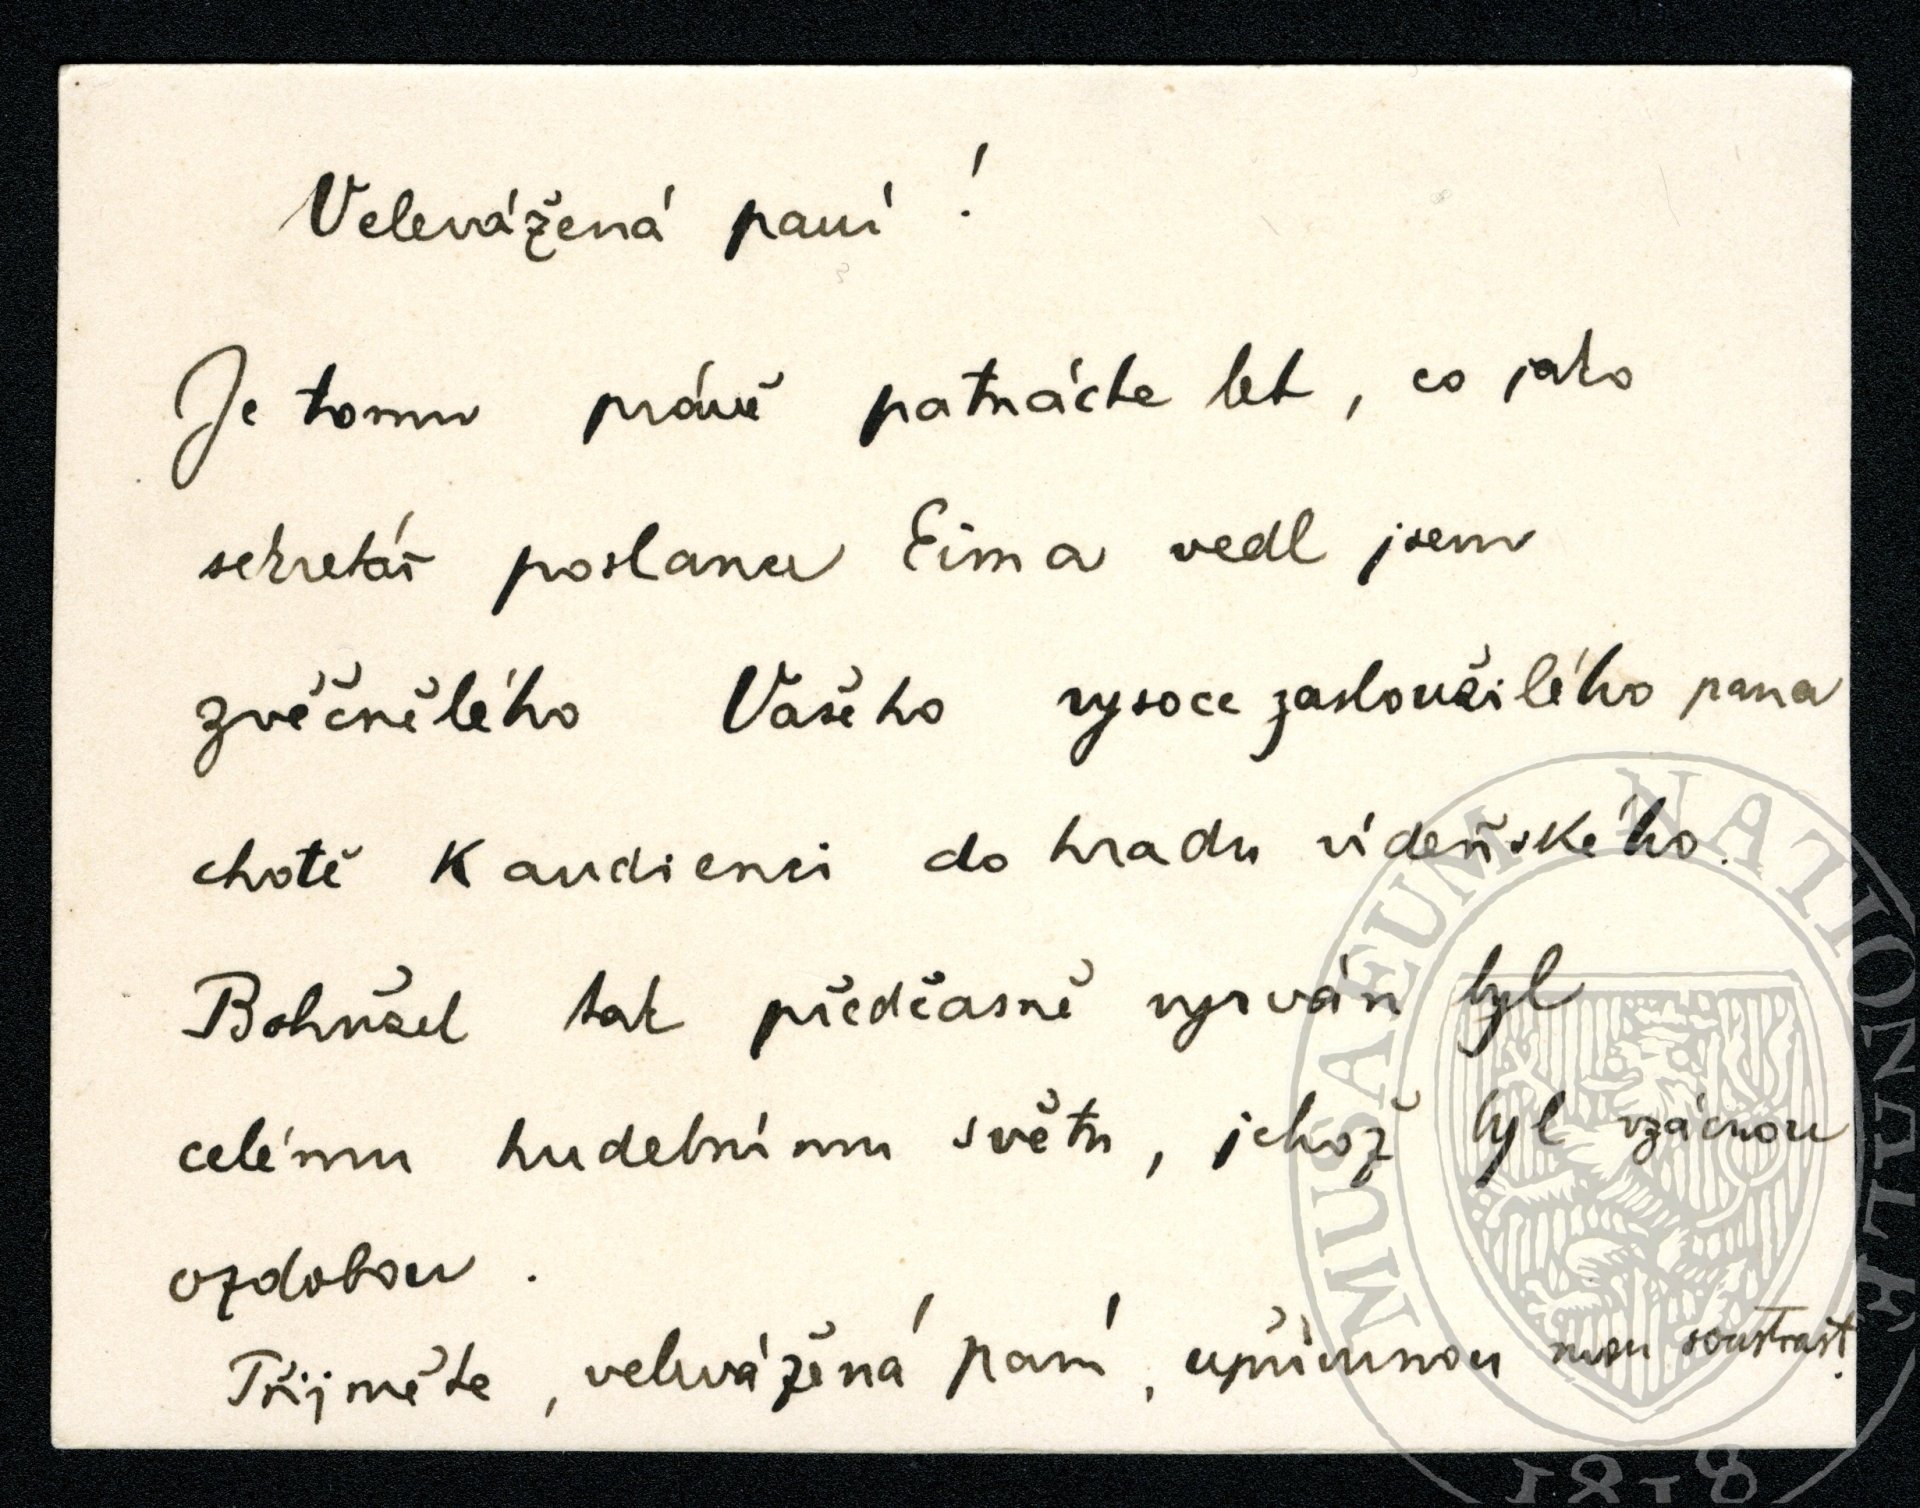 Velevážená paní!
Je tomu právě patnácte let, co jako
sekretář poslance Eima vedl jsem
zvěčnělého Vašeho vysoce zasloužilého pana
chotě k audienci do hradu vídeňského.
Bohužel tak předčasně vyrván byl
celému hudebnímu světu, jehož byl vzácnou
ozdobou.
Přijměte, velevážená paní, upřímnou mou soustrast.
MUSAEUM NATIONALE
1818